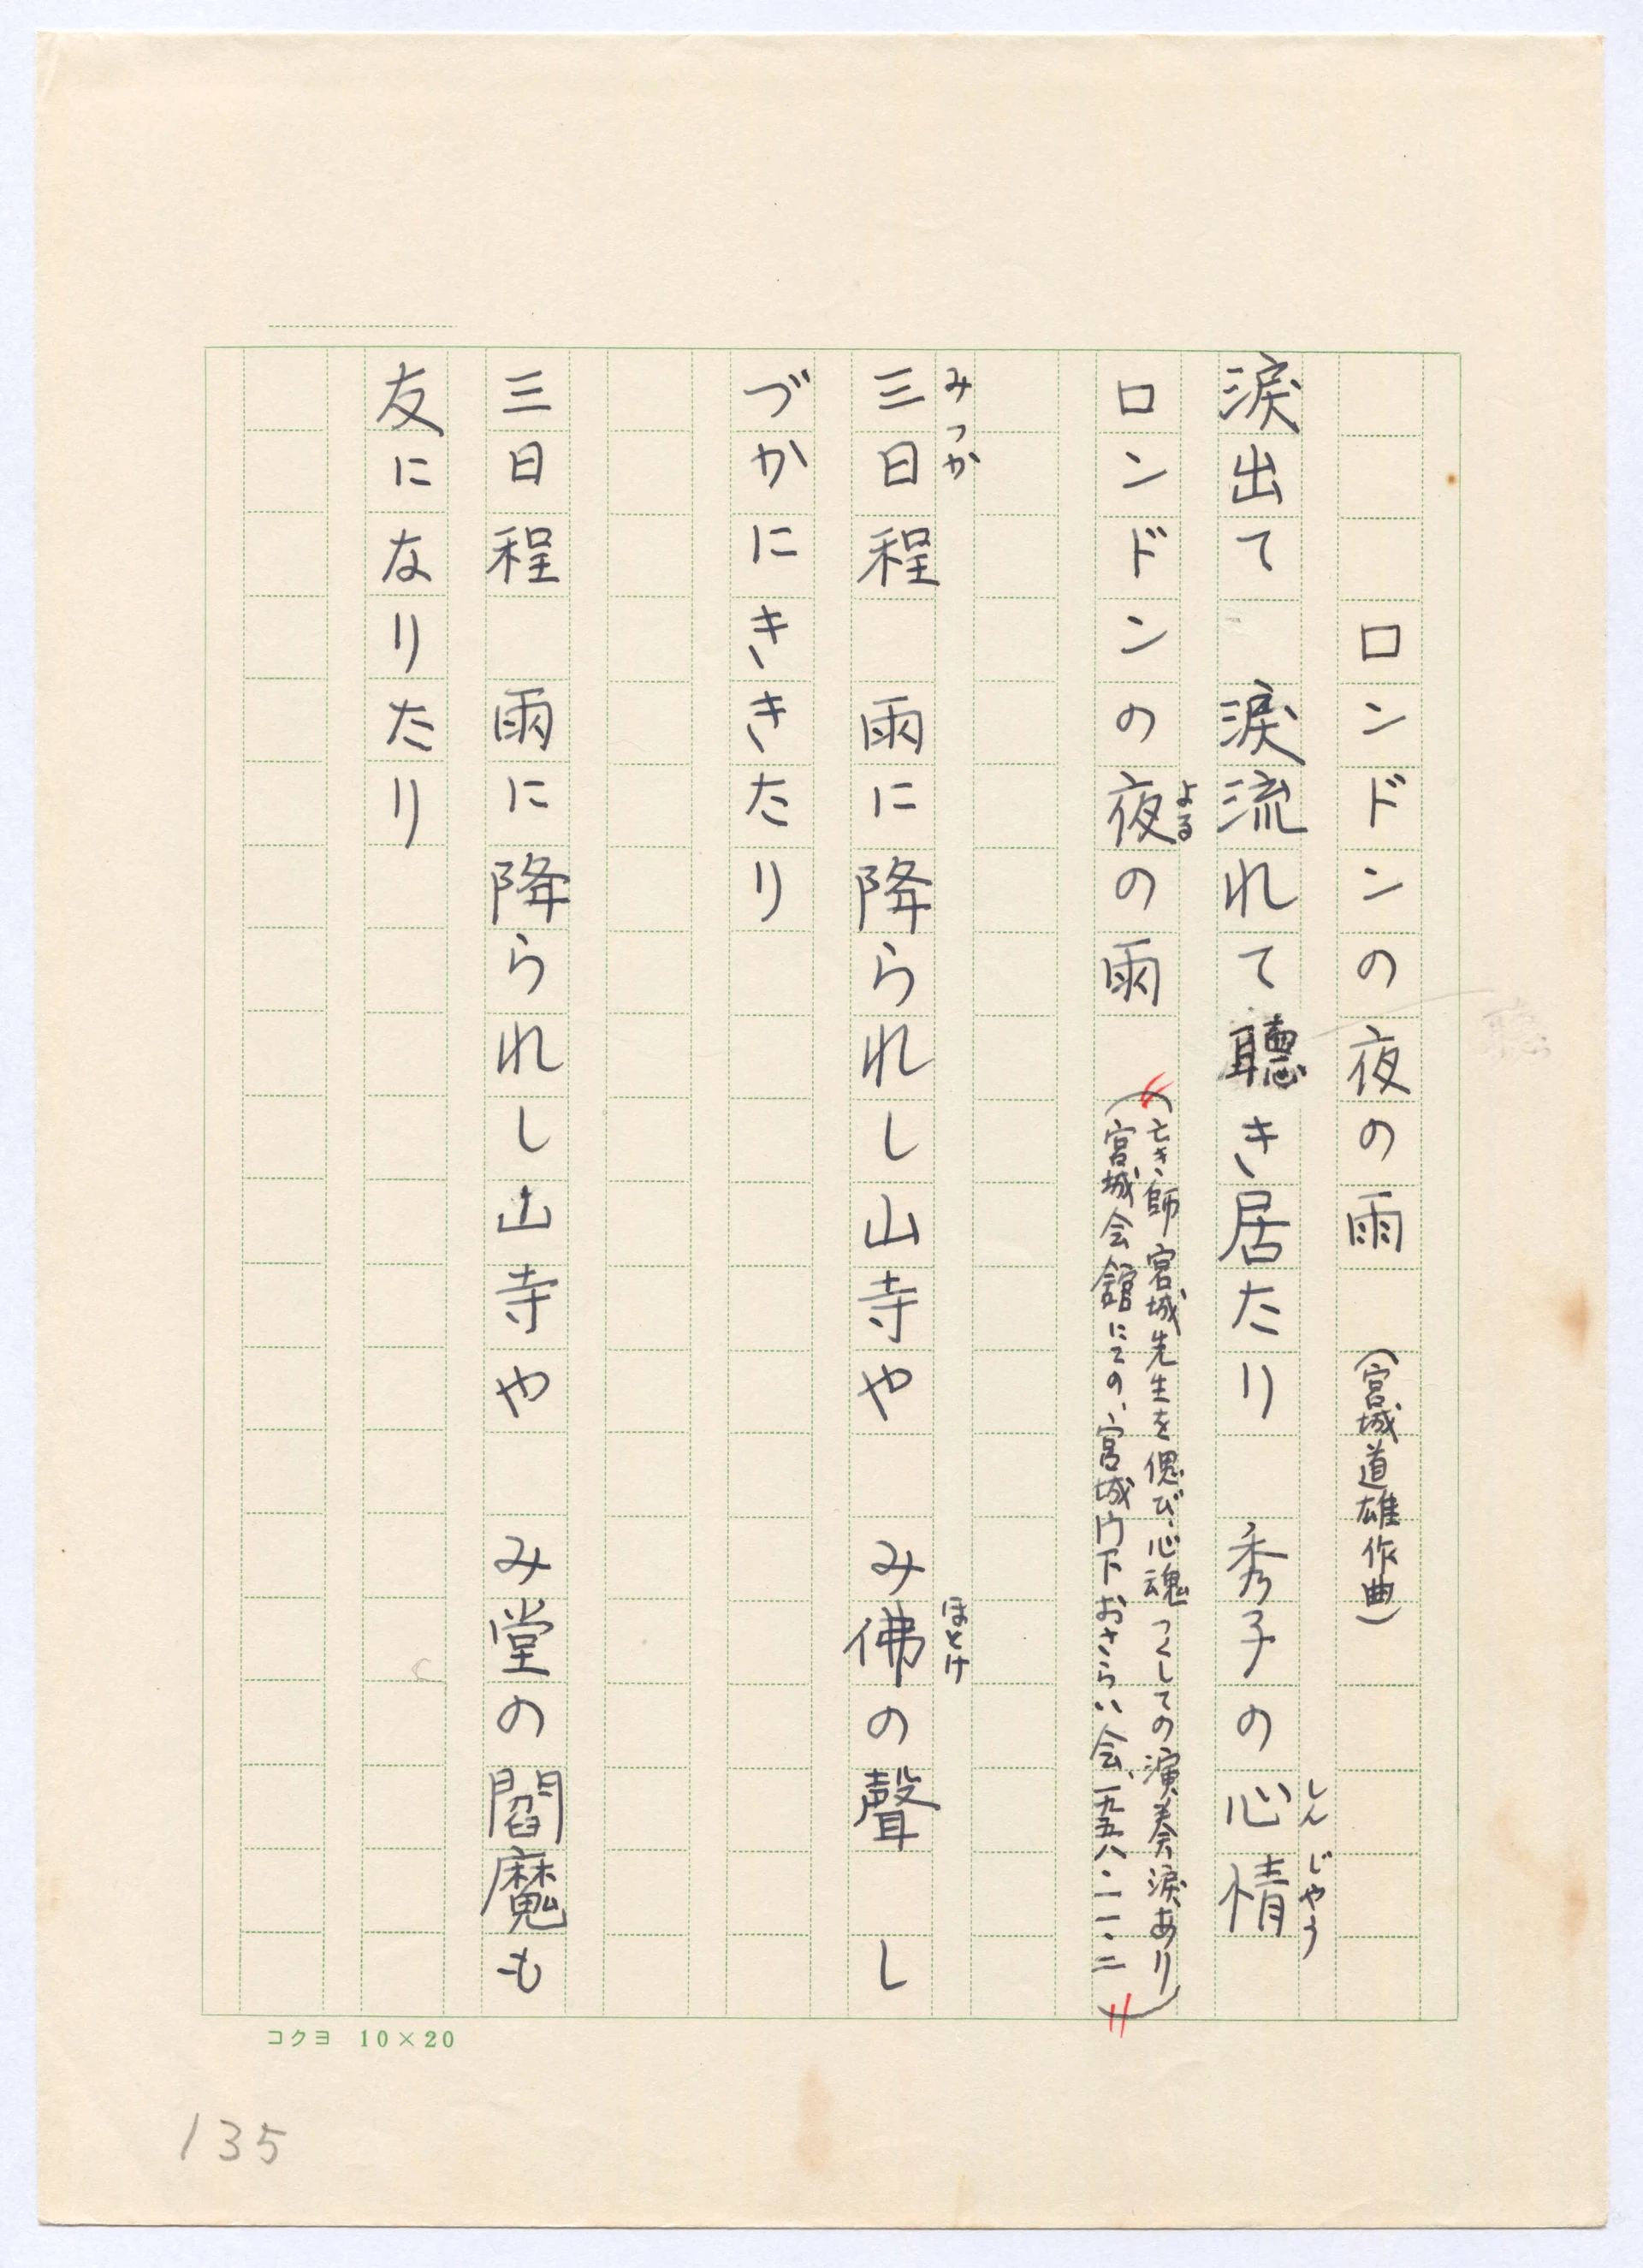 ロンドンの夜の雨 (宮城道雄作曲)
涙出て 涙流れて聴き居たり 秀子の心情
しんじやう
ロンドンの夜の雨
よる
(亡き師宮城先生を偲び、心魂つくしての演奏会涙あり
宮城会館にての、宮城門下おさらい会、一九五八・一一・二)
三日程 雨に降られし山寺や み佛の聲 し
みつか
ほとけ
づかにききたり
三日程 雨に降られし山寺や み堂の閻魔も
友になりたり
コクヨ 10×20
135